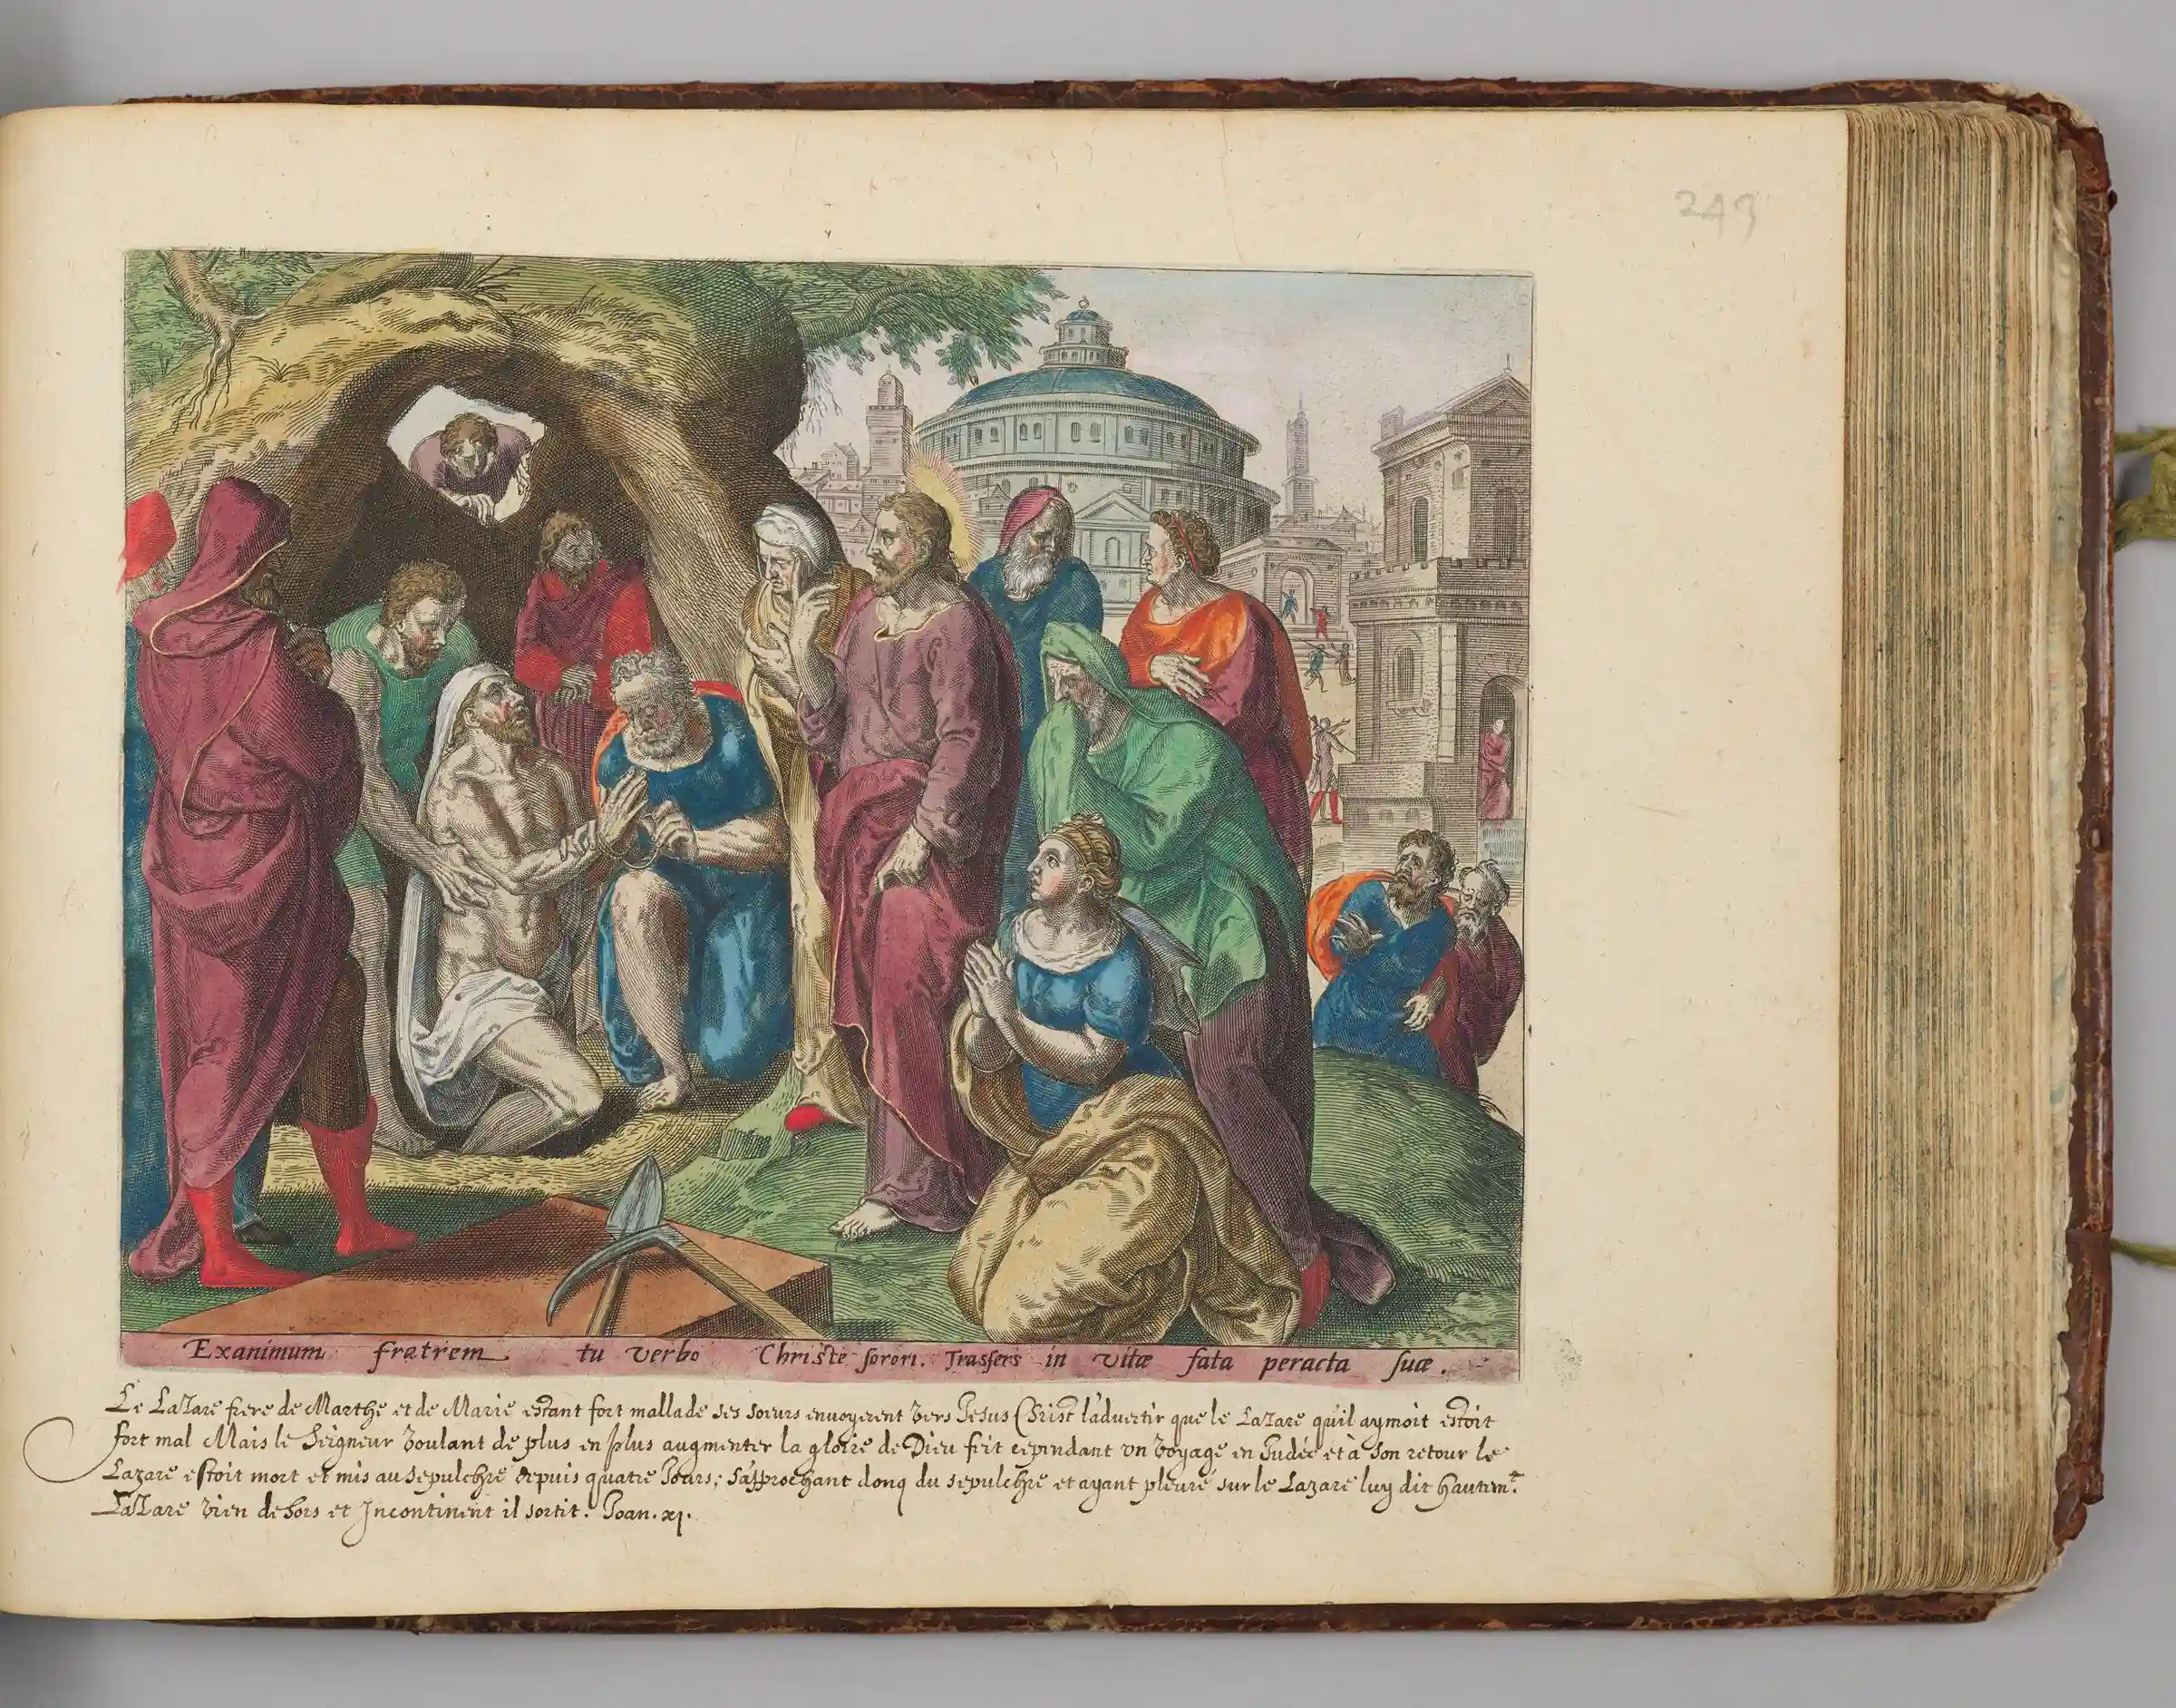 243
Exanimum fratrem tu verbo Christe sorori. Trasfers in vitæ fata peracta suæ.
Le Lazare frere de Marthe et de Marie estant fort mallade ses soeurs envoyerent vers Jesus Christ l'advertir que le Lazare qu'il aymoit estoit
fort mal Mais le Seigneur voulant de plus en plus augmenter la gloire de Dieu feit cependant vn voyage en Judée et à son retour le
Lazare estoit mort et mis au sepulchre depuis quatre Jours; s'approchant donq du sepulchre et ayant pleuré sur le Lazare luy dit hautemt.
Lazare vien dehors et Incontinent il sortit. Joan. xj.